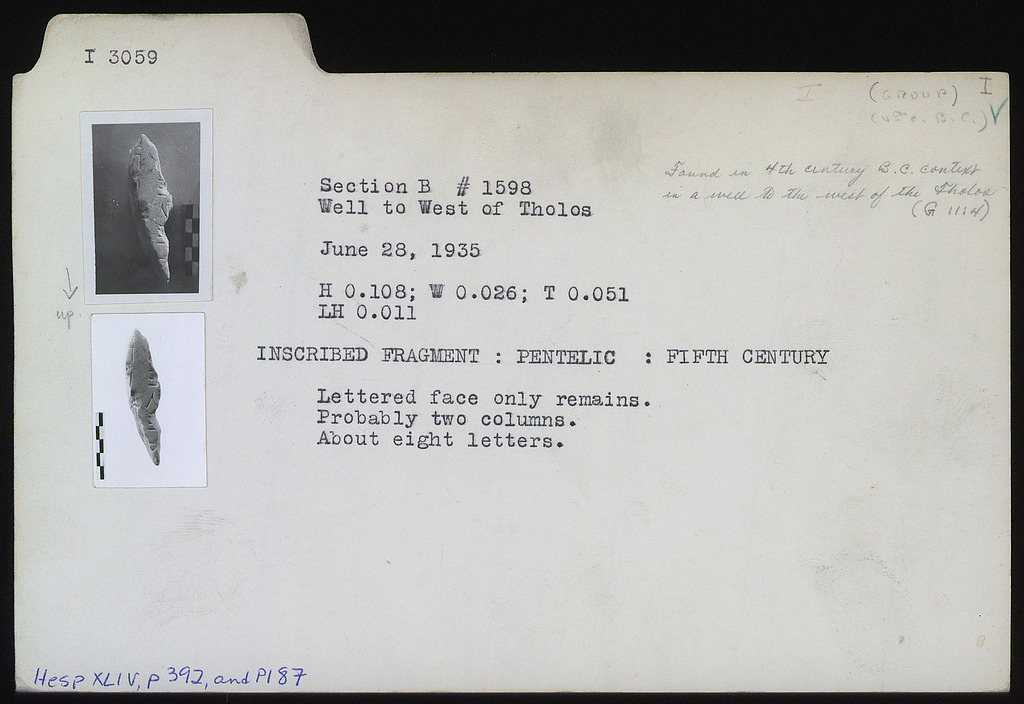 I 3059
I (GROUP) I
(4th c. B.C.) ✓
Found in 4th century B.C. context
in a well to the west of the Tholos
(G 11:4)
Section B # 1598
Well to West of Tholos
June 28, 1935
H 0.108; W 0.026; T 0.051
LH 0.011
up.
INSCRIBED FRAGMENT : PENTELIC : FIFTH CENTURY
Lettered face only remains.
Probably two columns.
About eight letters.
Hesp XLIV, p 392, and Pl 87